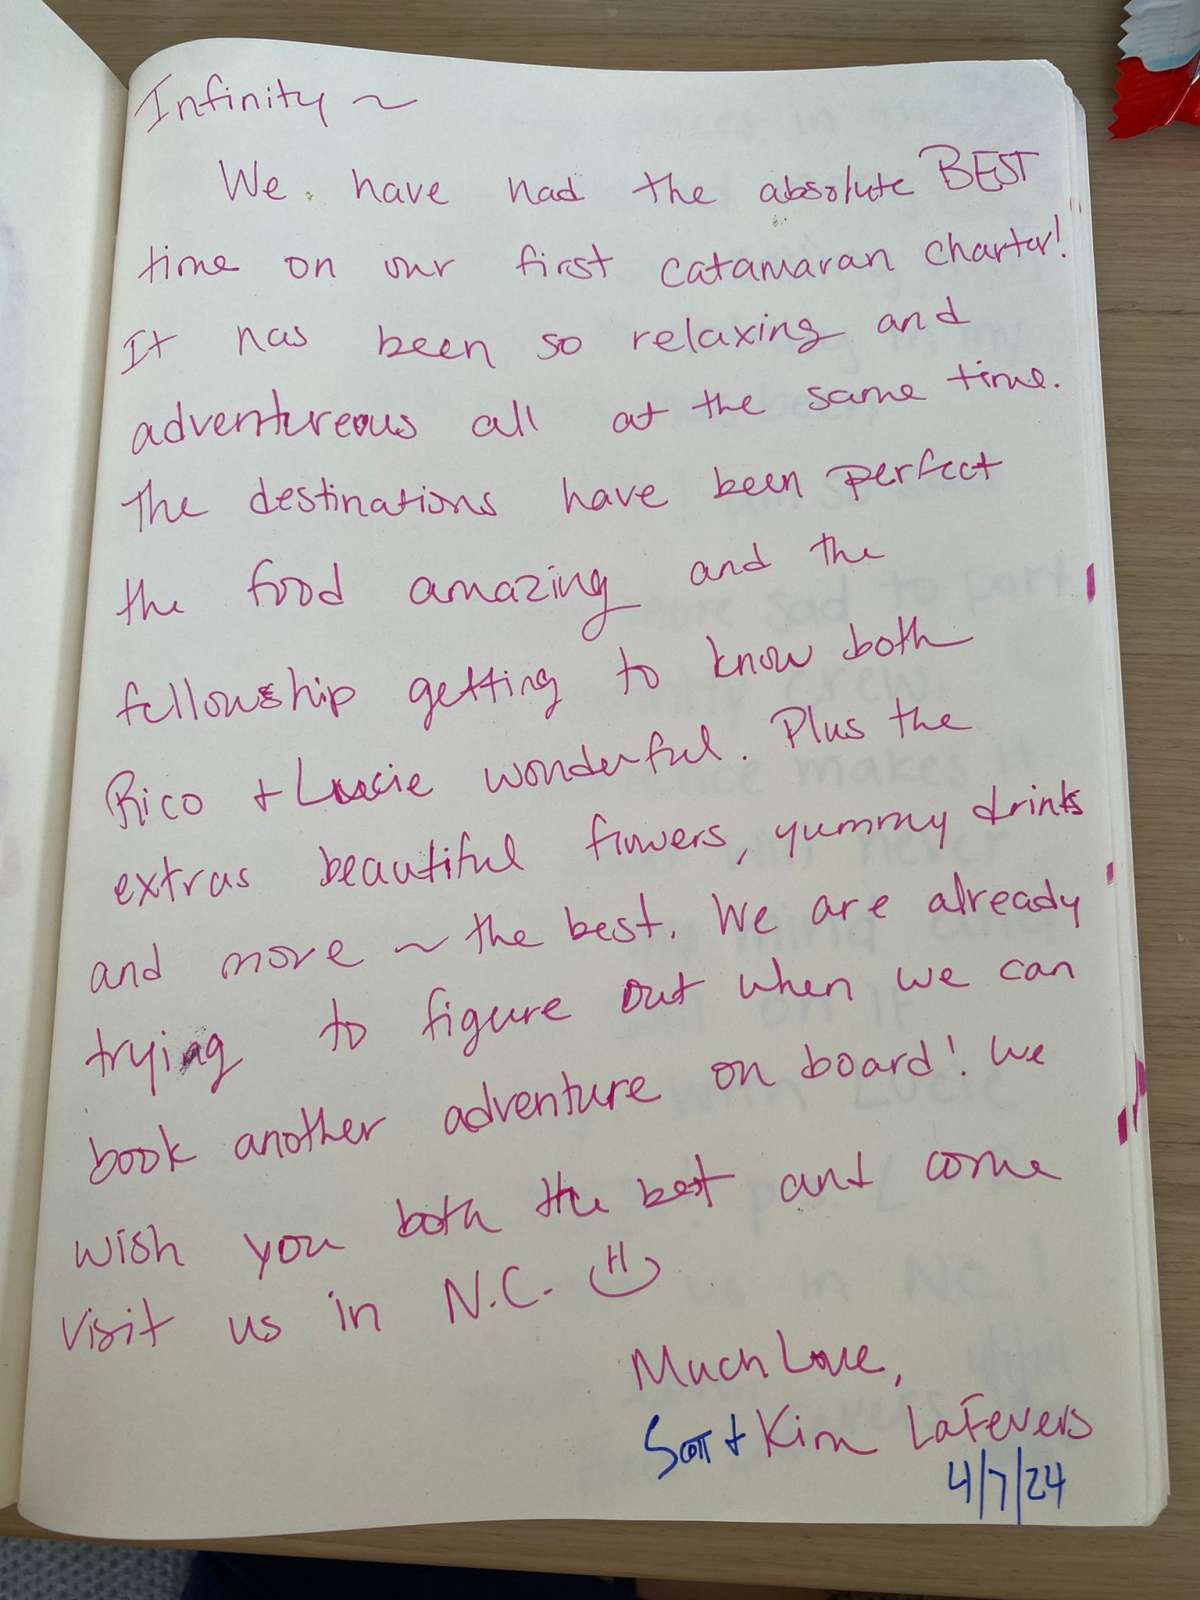 Infinity ~
We have had the absolute BEST
time on our first catamaran charter!
It has been so relaxing and
adventureous all at the same time.
The destinations have been perfect
the food amazing and the
fellowship getting to know both
Rico + Lucie wonderful. Plus the
extras beautiful flowers, yummy drinks
and more ~ the best. We are already
trying to figure out when we can
book another adventure on board! We
wish you both the best and come
visit us in N.C.
Much Love,
Scott + Kim LaFevers
4/7/24